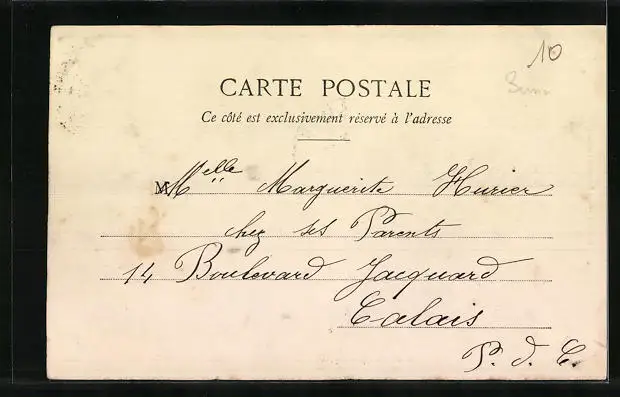 10
CARTE POSTALE
Ce côté est exclusivement réservé à l'adresse
Melle Marguerite Hurier
chez ses Parents
14 Boulevard Jacquard
Calais
P. d. C.